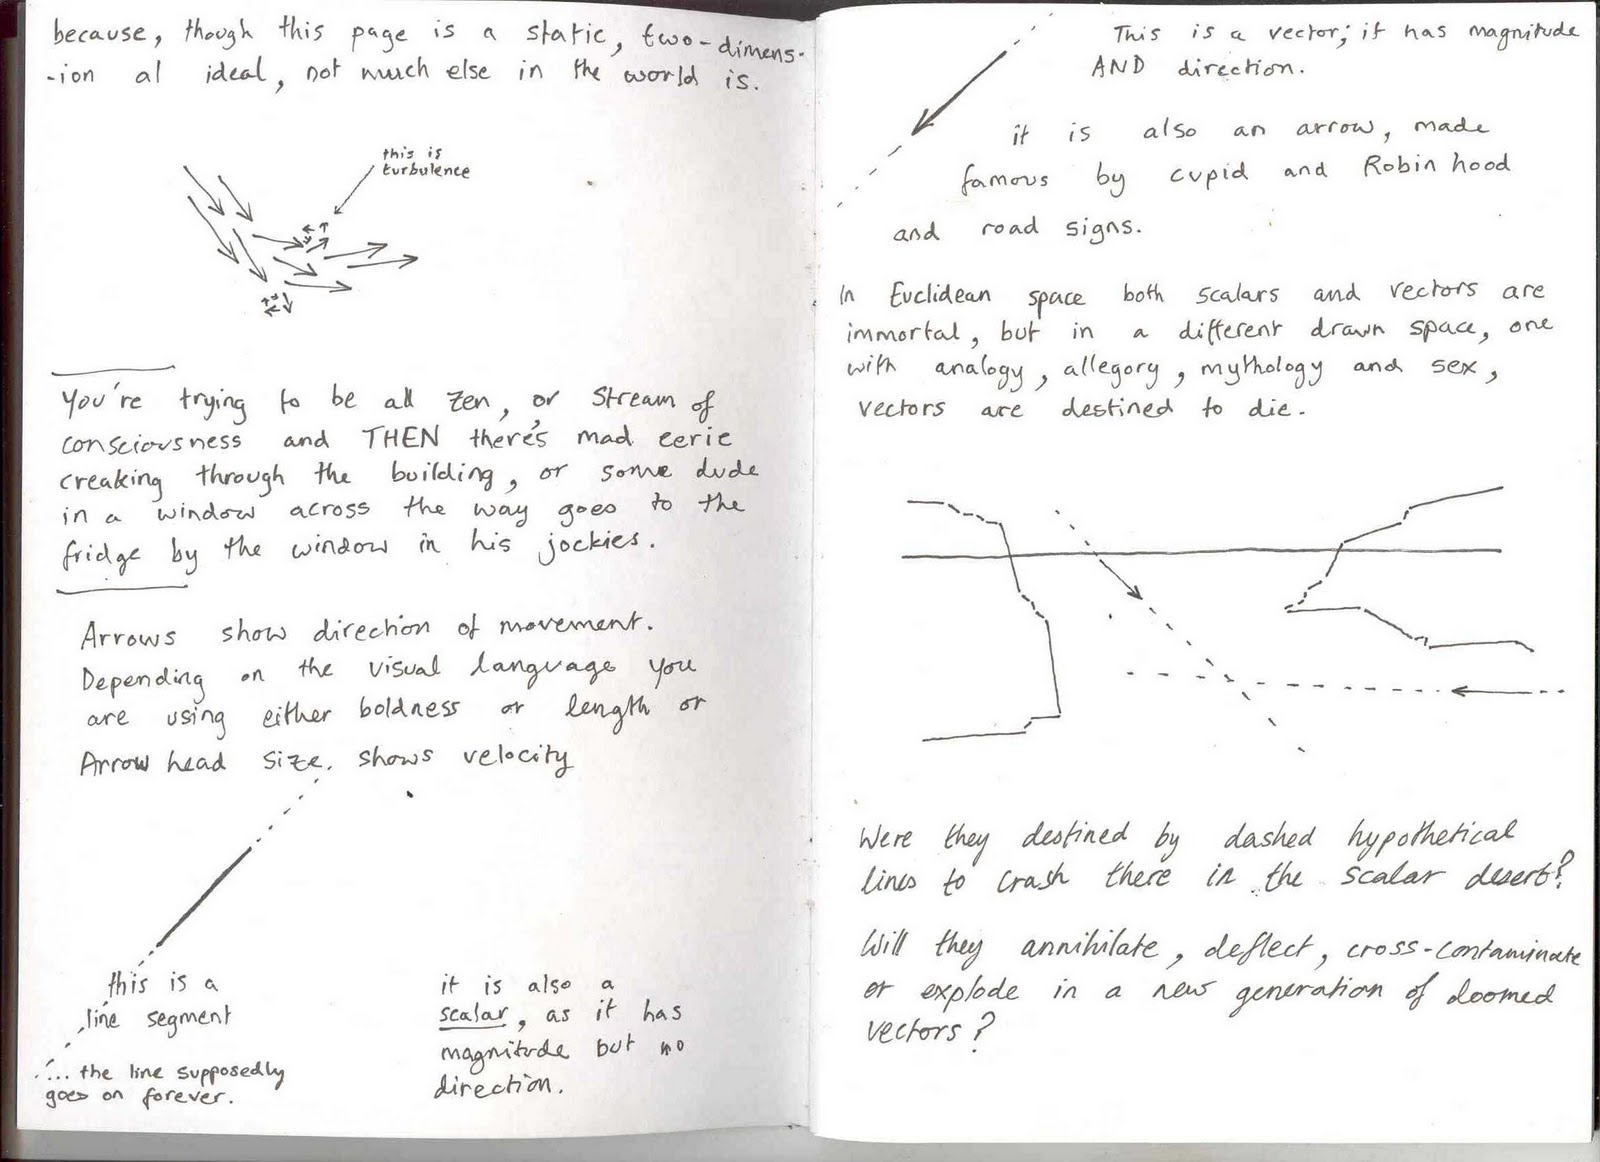 because, though this page is a static, two-dimens-
-ion al ideal, not much else in the world is.
this is
turbulence
You're trying to be all zen, or stream of
consciousness and THEN there's mad eerie
creaking through the building, or some dude
in a window across the way goes to the
fridge by the window in his jockies.
Arrows show direction of movement.
Depending on the visual language you
are using either boldness or length or
Arrow head size. shows velocity
this is a
line segment
... the line supposedly
goes on forever.
it is also a
scalar, as it has
magnitude but no
direction.
This is a vector; it has magnitude
AND direction.
it is also an arrow, made
famous by cupid and Robin hood
and road signs.
In Euclidean space both scalars and vectors are
immortal, but in a different drawn space, one
with analogy, allegory, mythology and sex,
vectors are destined to die.
Were they destined by dashed hypothetical
lines to crash there in the scalar desert?
Will they annihilate, deflect, cross-contaminate
or explode in a new generation of doomed
vectors?